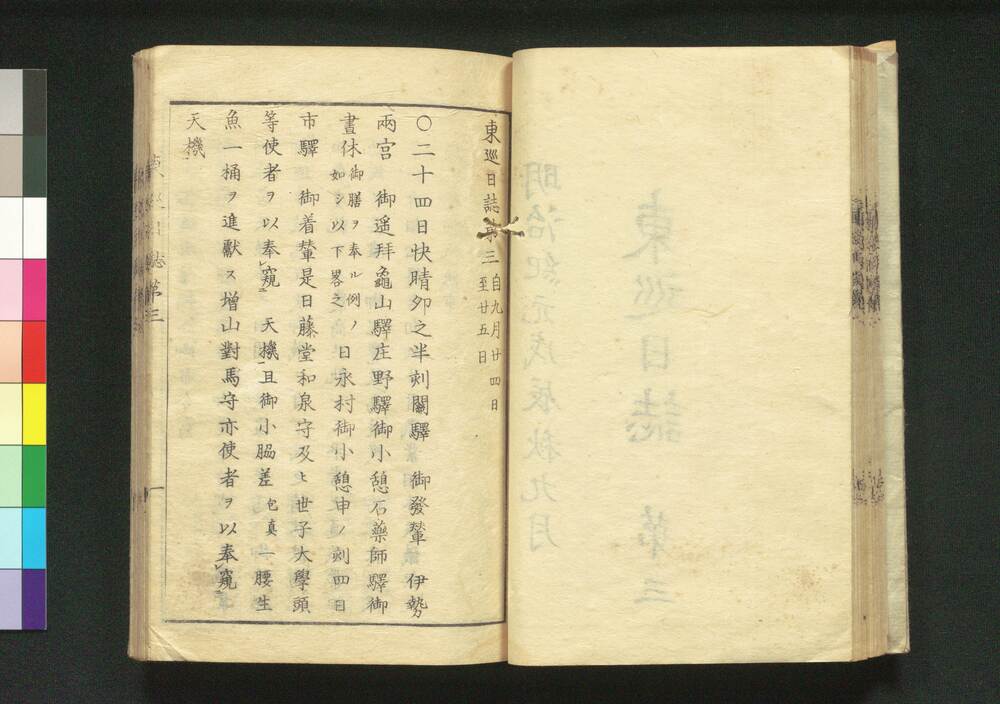 東巡日誌第三 自九月廿四日 至廿五日
〇二十四日快晴夘之半刻關驛 御發輦 伊勢
兩宮 御遥拜龜山驛庄野驛御小憩石藥師驛御
晝休 御膳ヲ奉ル例ノ如シ以下畧之 日永村御小憩申ノ刻四日
市驛 御着輦是日藤堂和泉守及ヒ世子大學頭
等使者ヲ以奉窺ニ 天機一且御小脇差 包真 一腰生
魚一桶ヲ進獻ス増山對馬守亦使者ヲ以奉窺
天機
東巡日誌第三
一
東巡日誌 第三
明治紀元戊辰秋九月